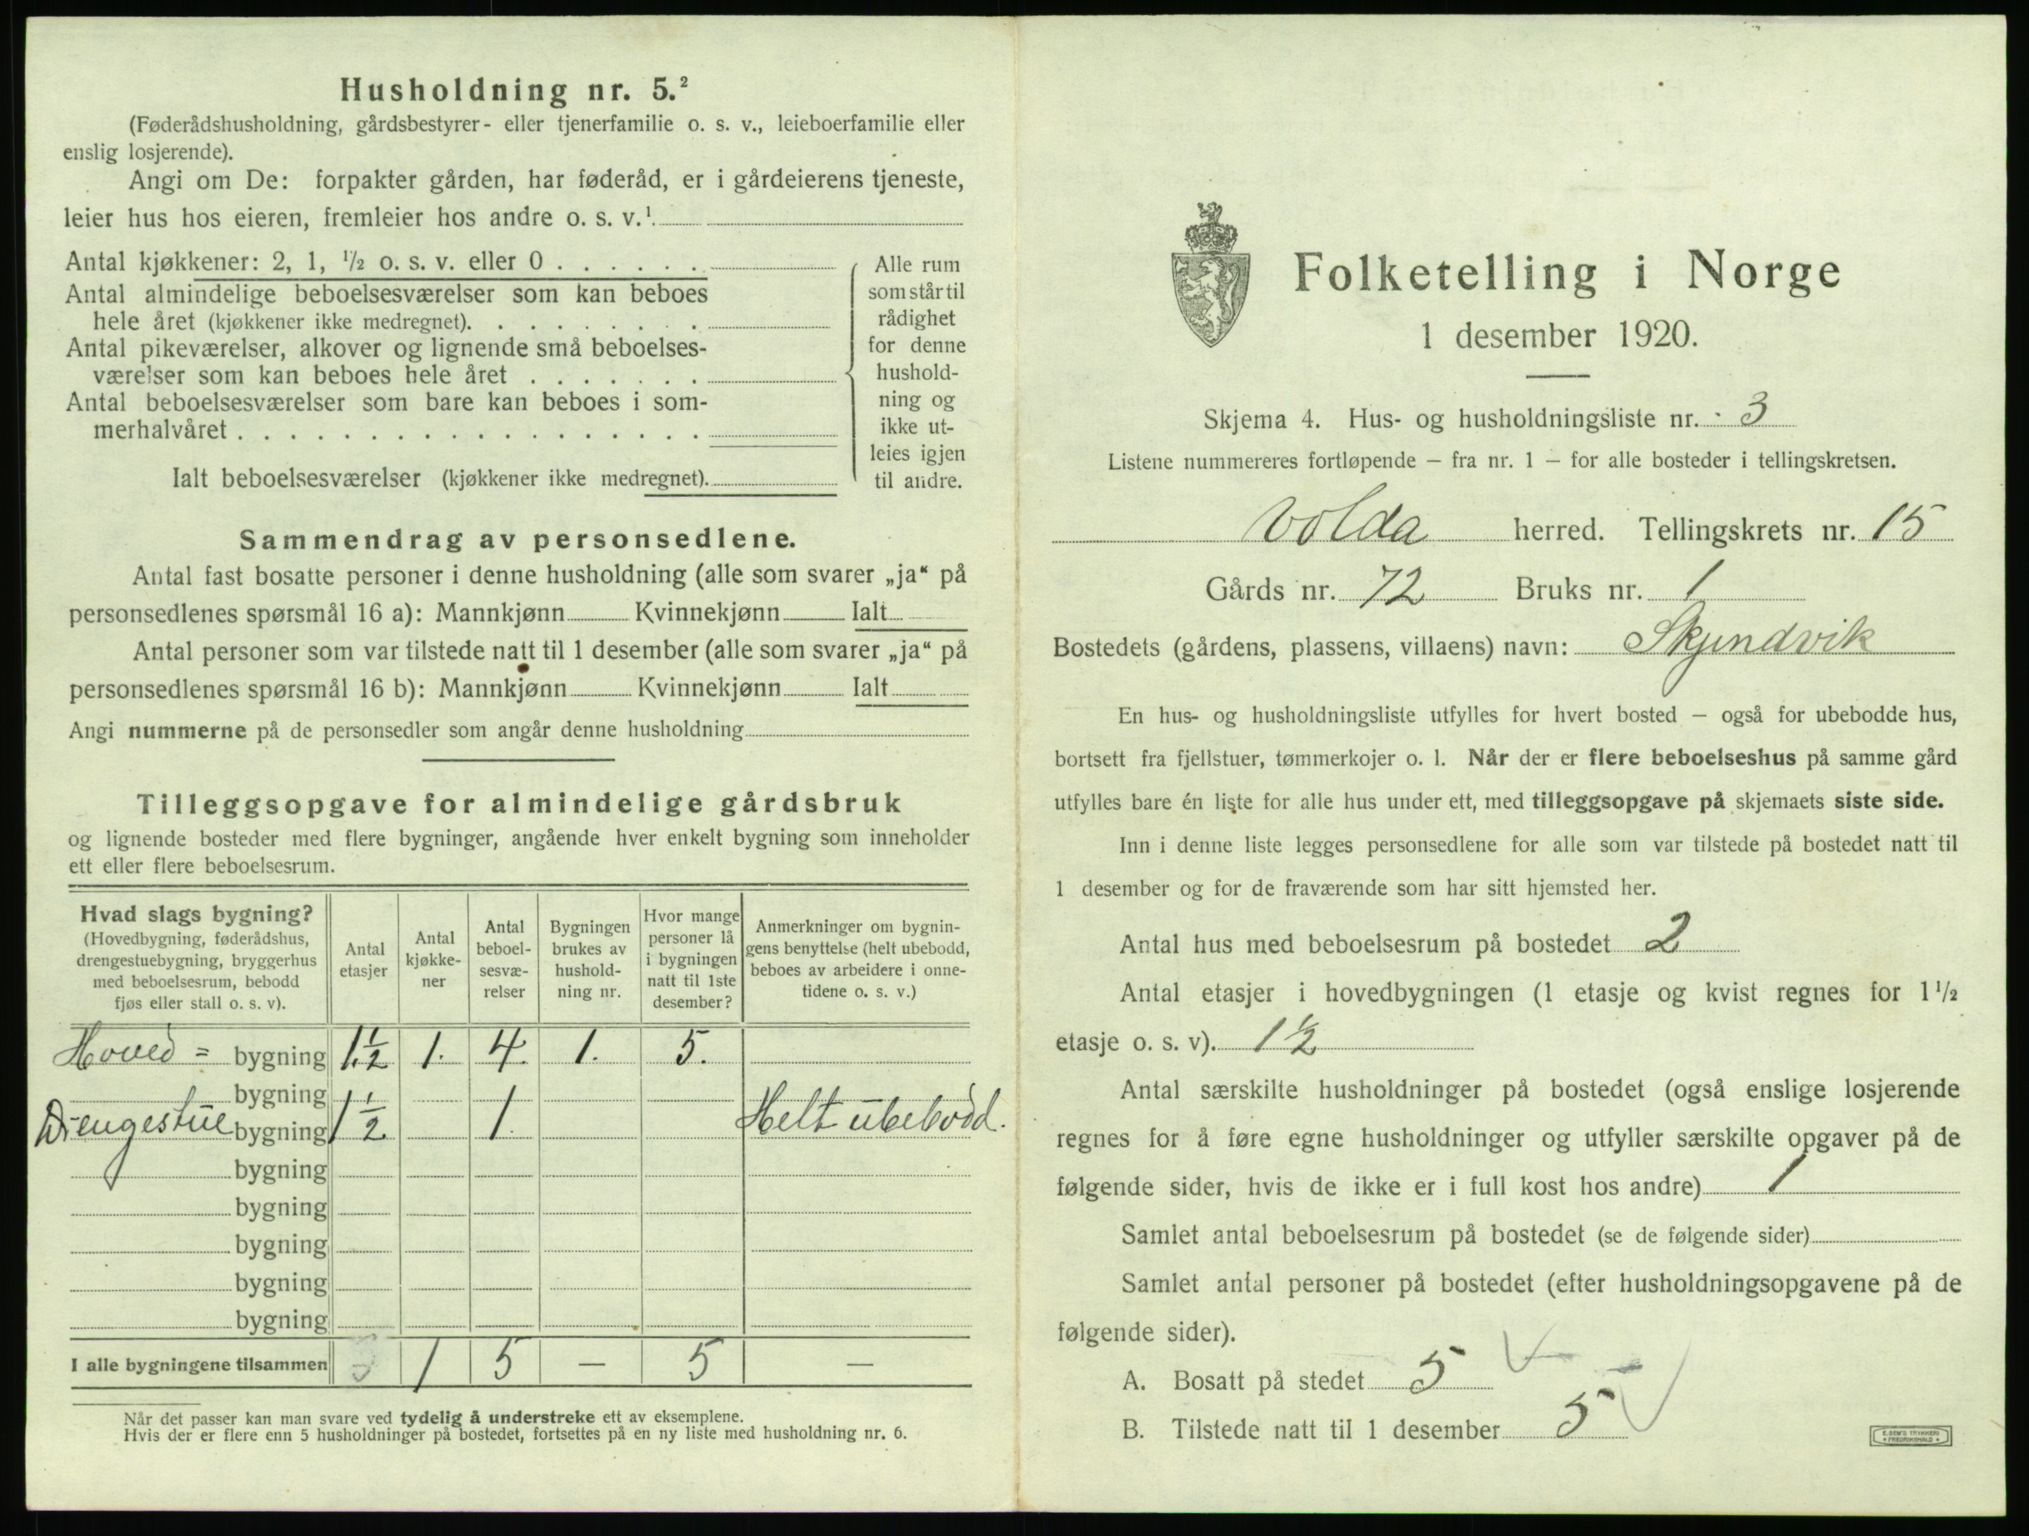 Husholdning nr. 5.²
(Føderådshusholdning, gårdsbestyrer- eller tjenerfamilie o. s. v., leieboerfamilie eller
enslig losjerende).
Angi om De: forpakter gården, har føderåd, er i gårdeierens tjeneste,
leier hus hos eieren, fremleier hos andre o. s. v.¹
Antal kjøkkener: 2, 1, ½ o. s. v. eller 0 . . . . . .
Antal almindelige beboelsesværelser som kan beboes
hele året (kjøkkener ikke medregnet). . . . . . . . .
Antal pikeværelser, alkover og lignende små beboelses-
værelser som kan beboes hele året . . . . . . .
Antal beboelsesværelser som bare kan beboes i som-
merhalvåret . . . . . . . . . . . . . . . . . .
Ialt beboelsesværelser (kjøkkener ikke medregnet).
Alle rum
som står til
rådighet
for denne
hushold-
ning og
ikke ut-
leies igjen
til andre.
Sammendrag av personsedlene.
Antal fast bosatte personer i denne husholdning (alle som svarer „ja“ på
personsedlenes spørsmål 16 a): Mannkjønn Kvinnekjønn Ialt
Antal personer som var tilstede natt til 1 desember (alle som svarer „ja“ på
personsedlenes spørsmål 16 b): Mannkjønn Kvinnekjønn Ialt
Angi nummerne på de personsedler som angår denne husholdning
Tilleggsopgave for almindelige gårdsbruk
og lignende bosteder med flere bygninger, angående hver enkelt bygning som inneholder
ett eller flere beboelsesrum.
Hvad slags bygning?
(Hovedbygning, føderådshus,
drengestuebygning, bryggerhus
med beboelsesrum, bebodd
fjøs eller stall o. s. v).
Antal
etasjer
Antal
kjøkke-
ner
Antal
beboel-
sesvæ-
relser
Bygningen
brukes av
hushold-
ning nr.
Hvor mange
personer lå
i bygningen
natt til 1ste
desember?
Anmerkninger om bygnin-
gens benyttelse (helt ubebodd,
beboes av arbeidere i onne-
tidene o. s. v.)
Hoved = bygning 1½ 1. 4. 1. 5.
bygning
Drengestue bygning 1½ 1. Helt ubebodd.
bygning
bygning
bygning
bygning
bygning
I alle bygningene tilsammen 3 1 5 — 5 —
Når det passer kan man svare ved tydelig å understreke ett av eksemplene.
Hvis der er flere enn 5 husholdninger på bostedet, fortsettes på en ny liste med husholdning nr. 6.
Folketelling i Norge
1 desember 1920.
Skjema 4. Hus- og husholdningsliste nr. 3
Listene nummereres fortløpende – fra nr. 1 – for alle bosteder i tellingskretsen.
Volda herred. Tellingskrets nr. 15
Gårds nr. 72 Bruks nr. 1
Bostedets (gårdens, plassens, villaens) navn: Skjundvik
En hus- og husholdningsliste utfylles for hvert bosted – også for ubebodde hus,
bortsett fra fjellstuer, tømmerkojer o. l. Når der er flere beboelseshus på samme gård
utfylles bare én liste for alle hus under ett, med tilleggsopgave på skjemaets siste side.
Inn i denne liste legges personsedlene for alle som var tilstede på bostedet natt til
1 desember og for de fraværende som har sitt hjemsted her.
Antal hus med beboelsesrum på bostedet 2
Antal etasjer i hovedbygningen (1 etasje og kvist regnes for 1½
etasje o. s. v). 1½
Antal særskilte husholdninger på bostedet (også enslige losjerende
regnes for å føre egne husholdninger og utfyller særskilte opgaver på de
følgende sider, hvis de ikke er i full kost hos andre) 1
Samlet antal beboelsesrum på bostedet (se de følgende sider)
Samlet antal personer på bostedet (efter husholdningsopgavene på de
følgende sider).
A. Bosatt på stedet 5
B. Tilstede natt til 1 desember 5
E. SEM'S TRYKKERI
FREDRIKSHALD